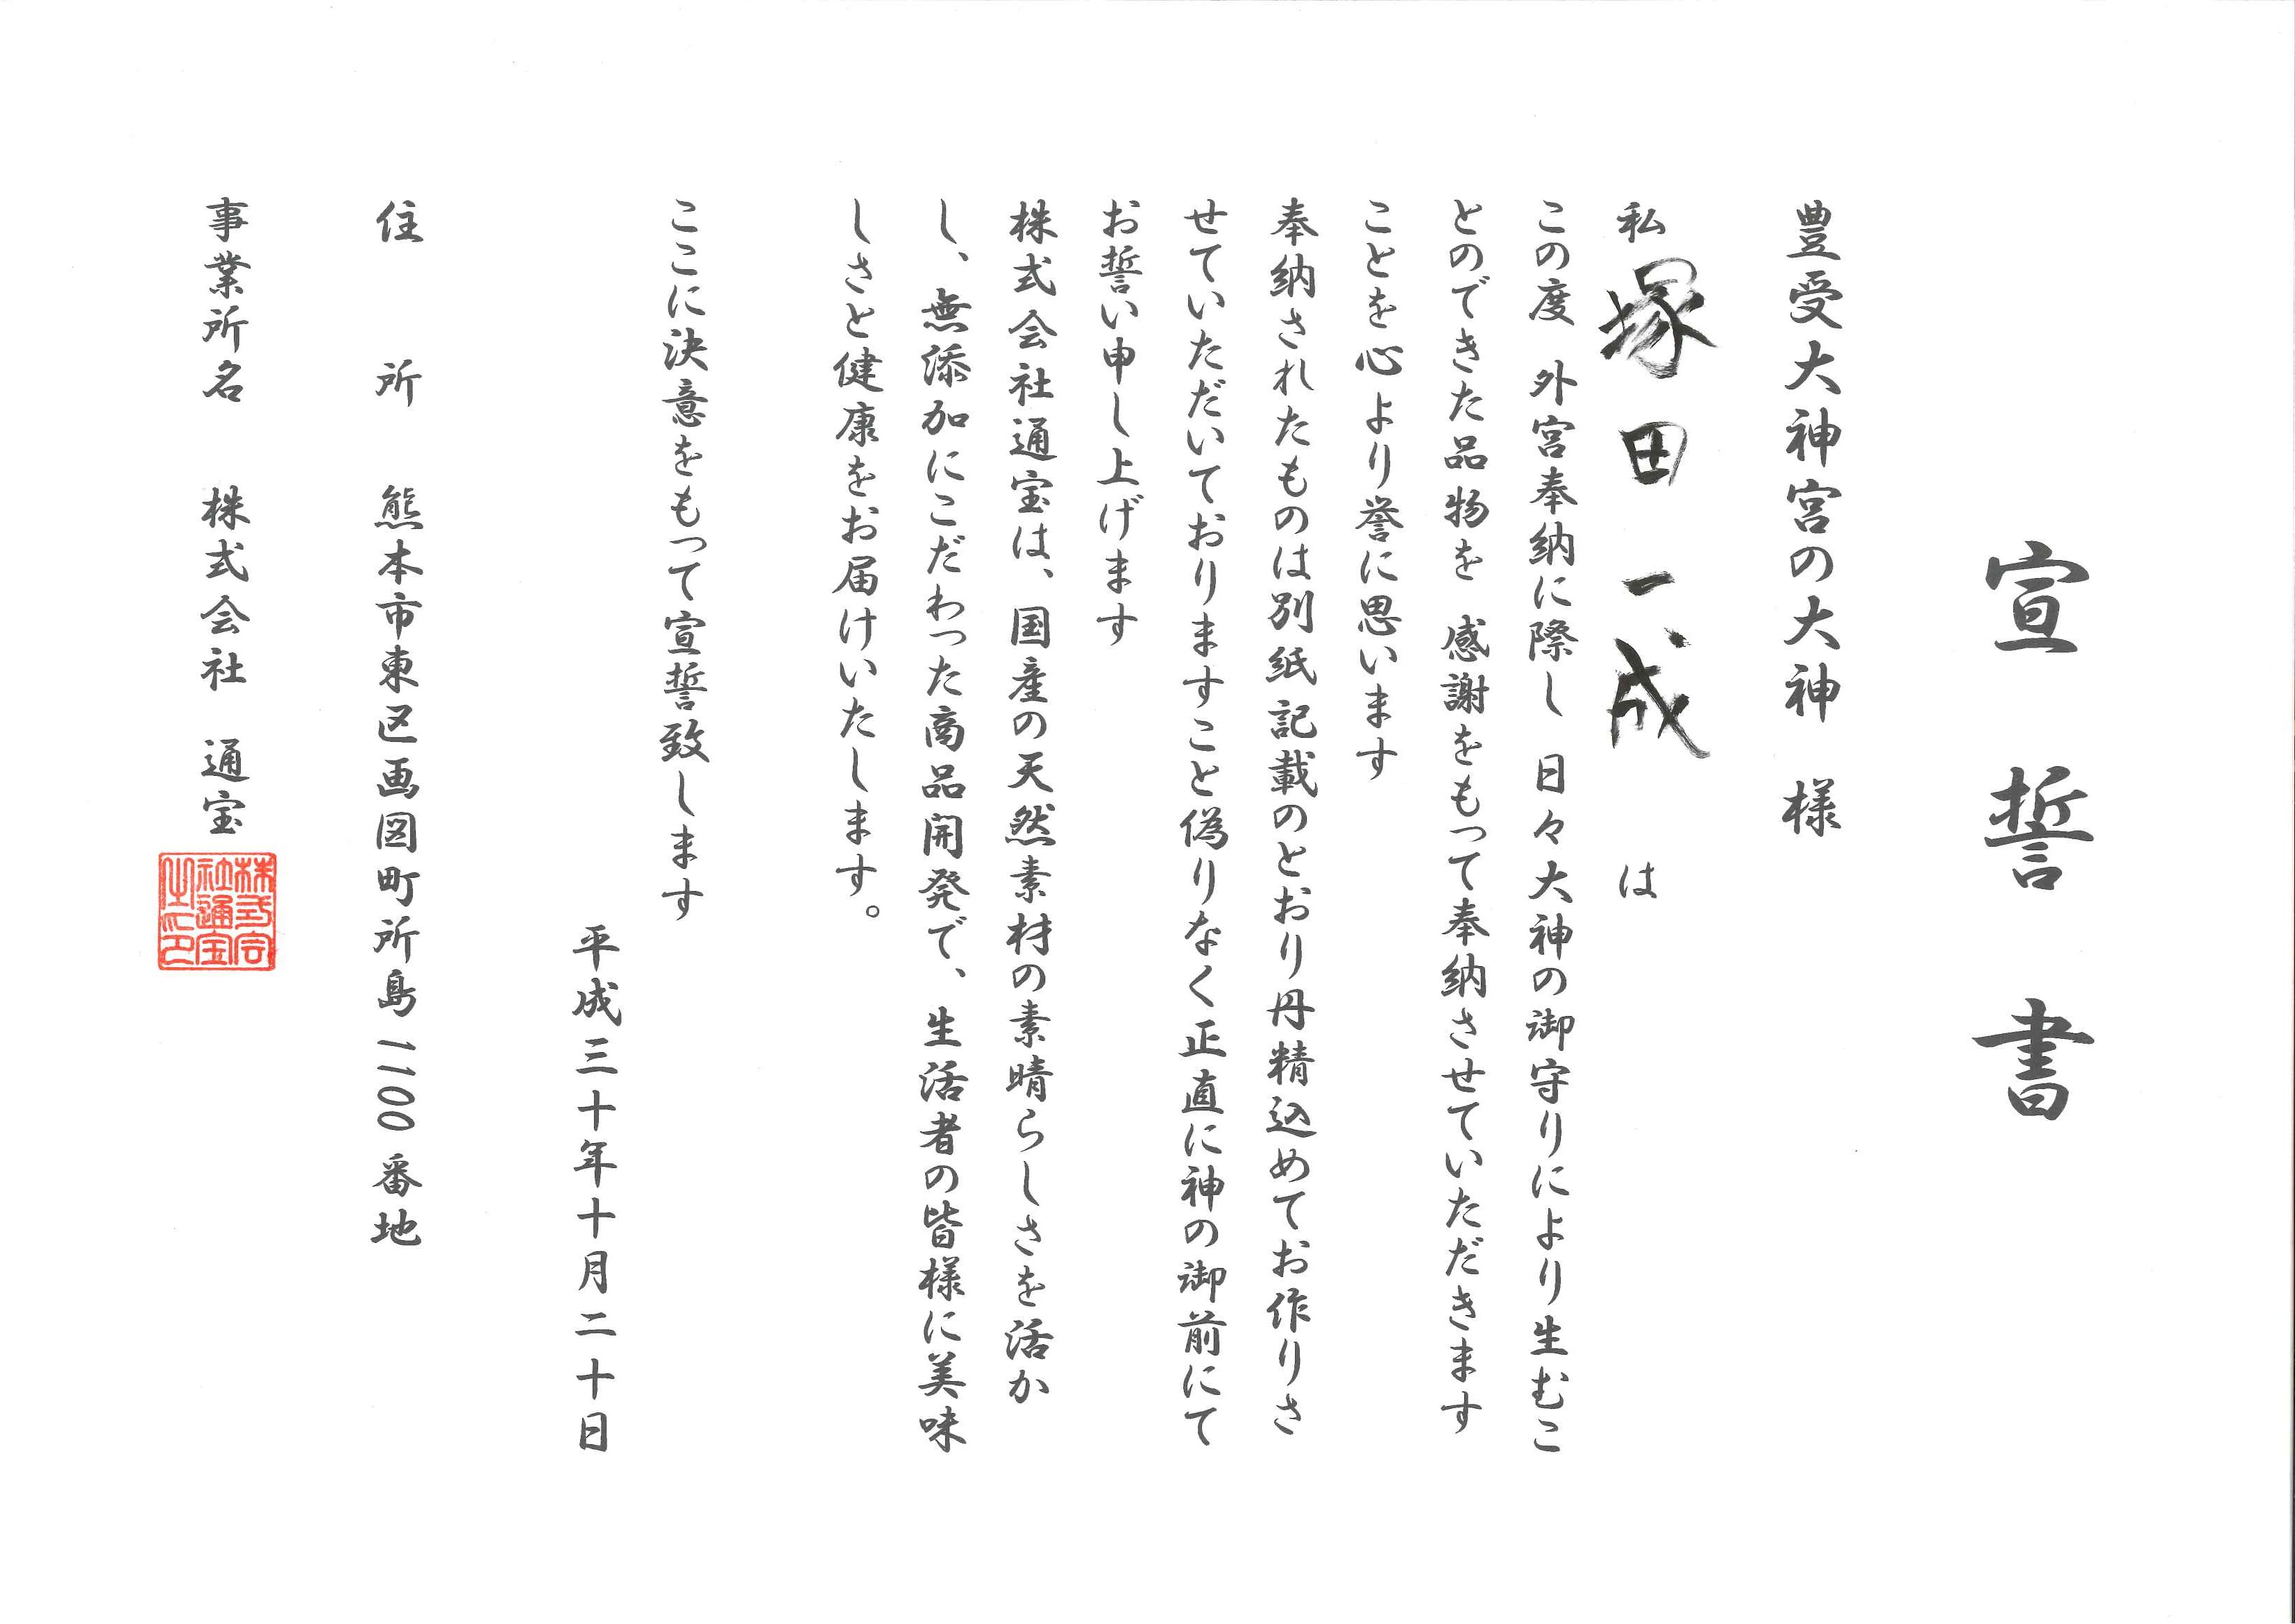 宣誓書
豊受大神宮の大神 様
私 塚田一成 は
この度 外宮奉納に際し 日々大神の御守りにより生むこ
とのできた品物を 感謝をもって奉納させていただきます
ことを心より誉に思います
奉納されたものは別紙記載のとおり丹精込めてお作りさ
せていただいておりますこと偽りなく正直に神の御前にて
お誓い申し上げます
株式会社通宝は、国産の天然素材の素晴らしさを活か
し、無添加にこだわった商品開発で、生活者の皆様に美味
しさと健康をお届けいたします。
ここに決意をもって宣誓致します
平成三十年十月二十日
住所 熊本市東区画図町所島1100番地
事業所名 株式会社 通宝
株式会社通宝之印